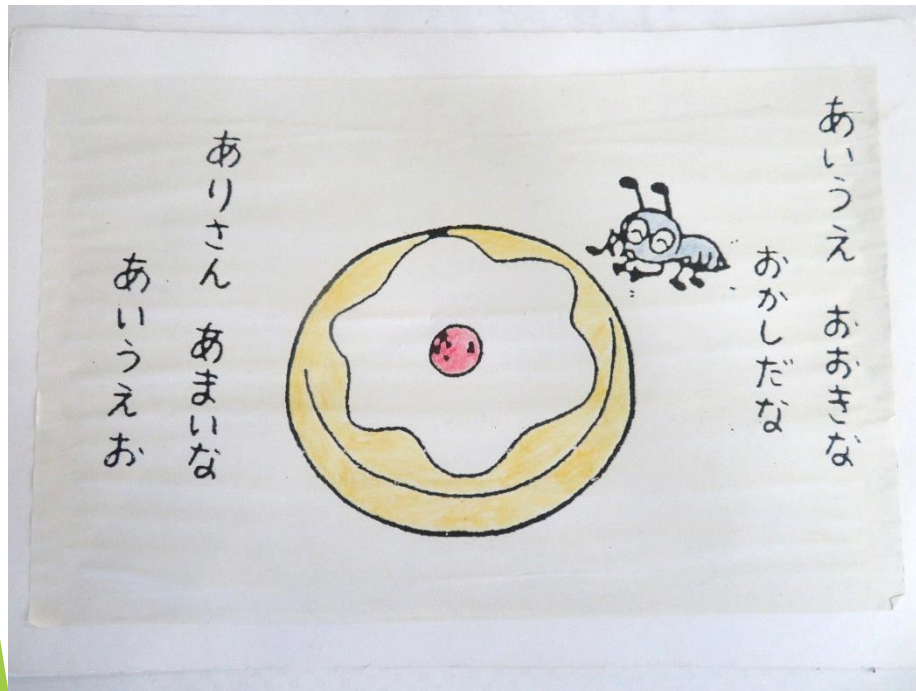 あいうえ　おおきな
おかしだな
ありさん　あまいな
あいうえお